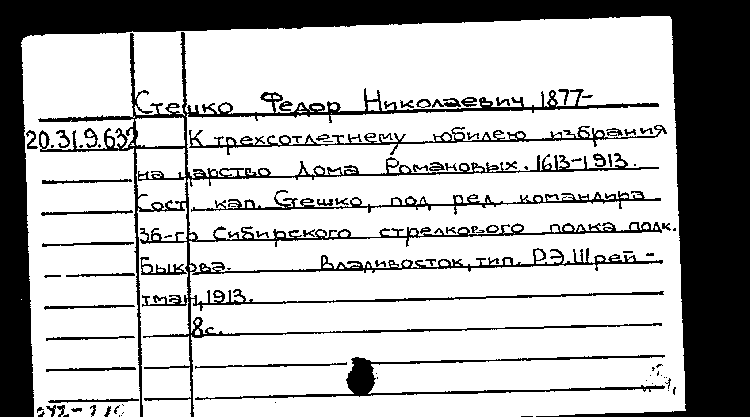 Стешко, Федор Николаевич, 1877-
20.31.9.632. К трехсотлетнему юбилею избрания
на царство Дома Романовых. 1613-1913.
Сост. кап. Стешко, под ред. командира
36-го Сибирского стрелкового полка полк.
Быкова. Владивосток, тип. Р.Э.Шрей-
тман, 1913.
8с.